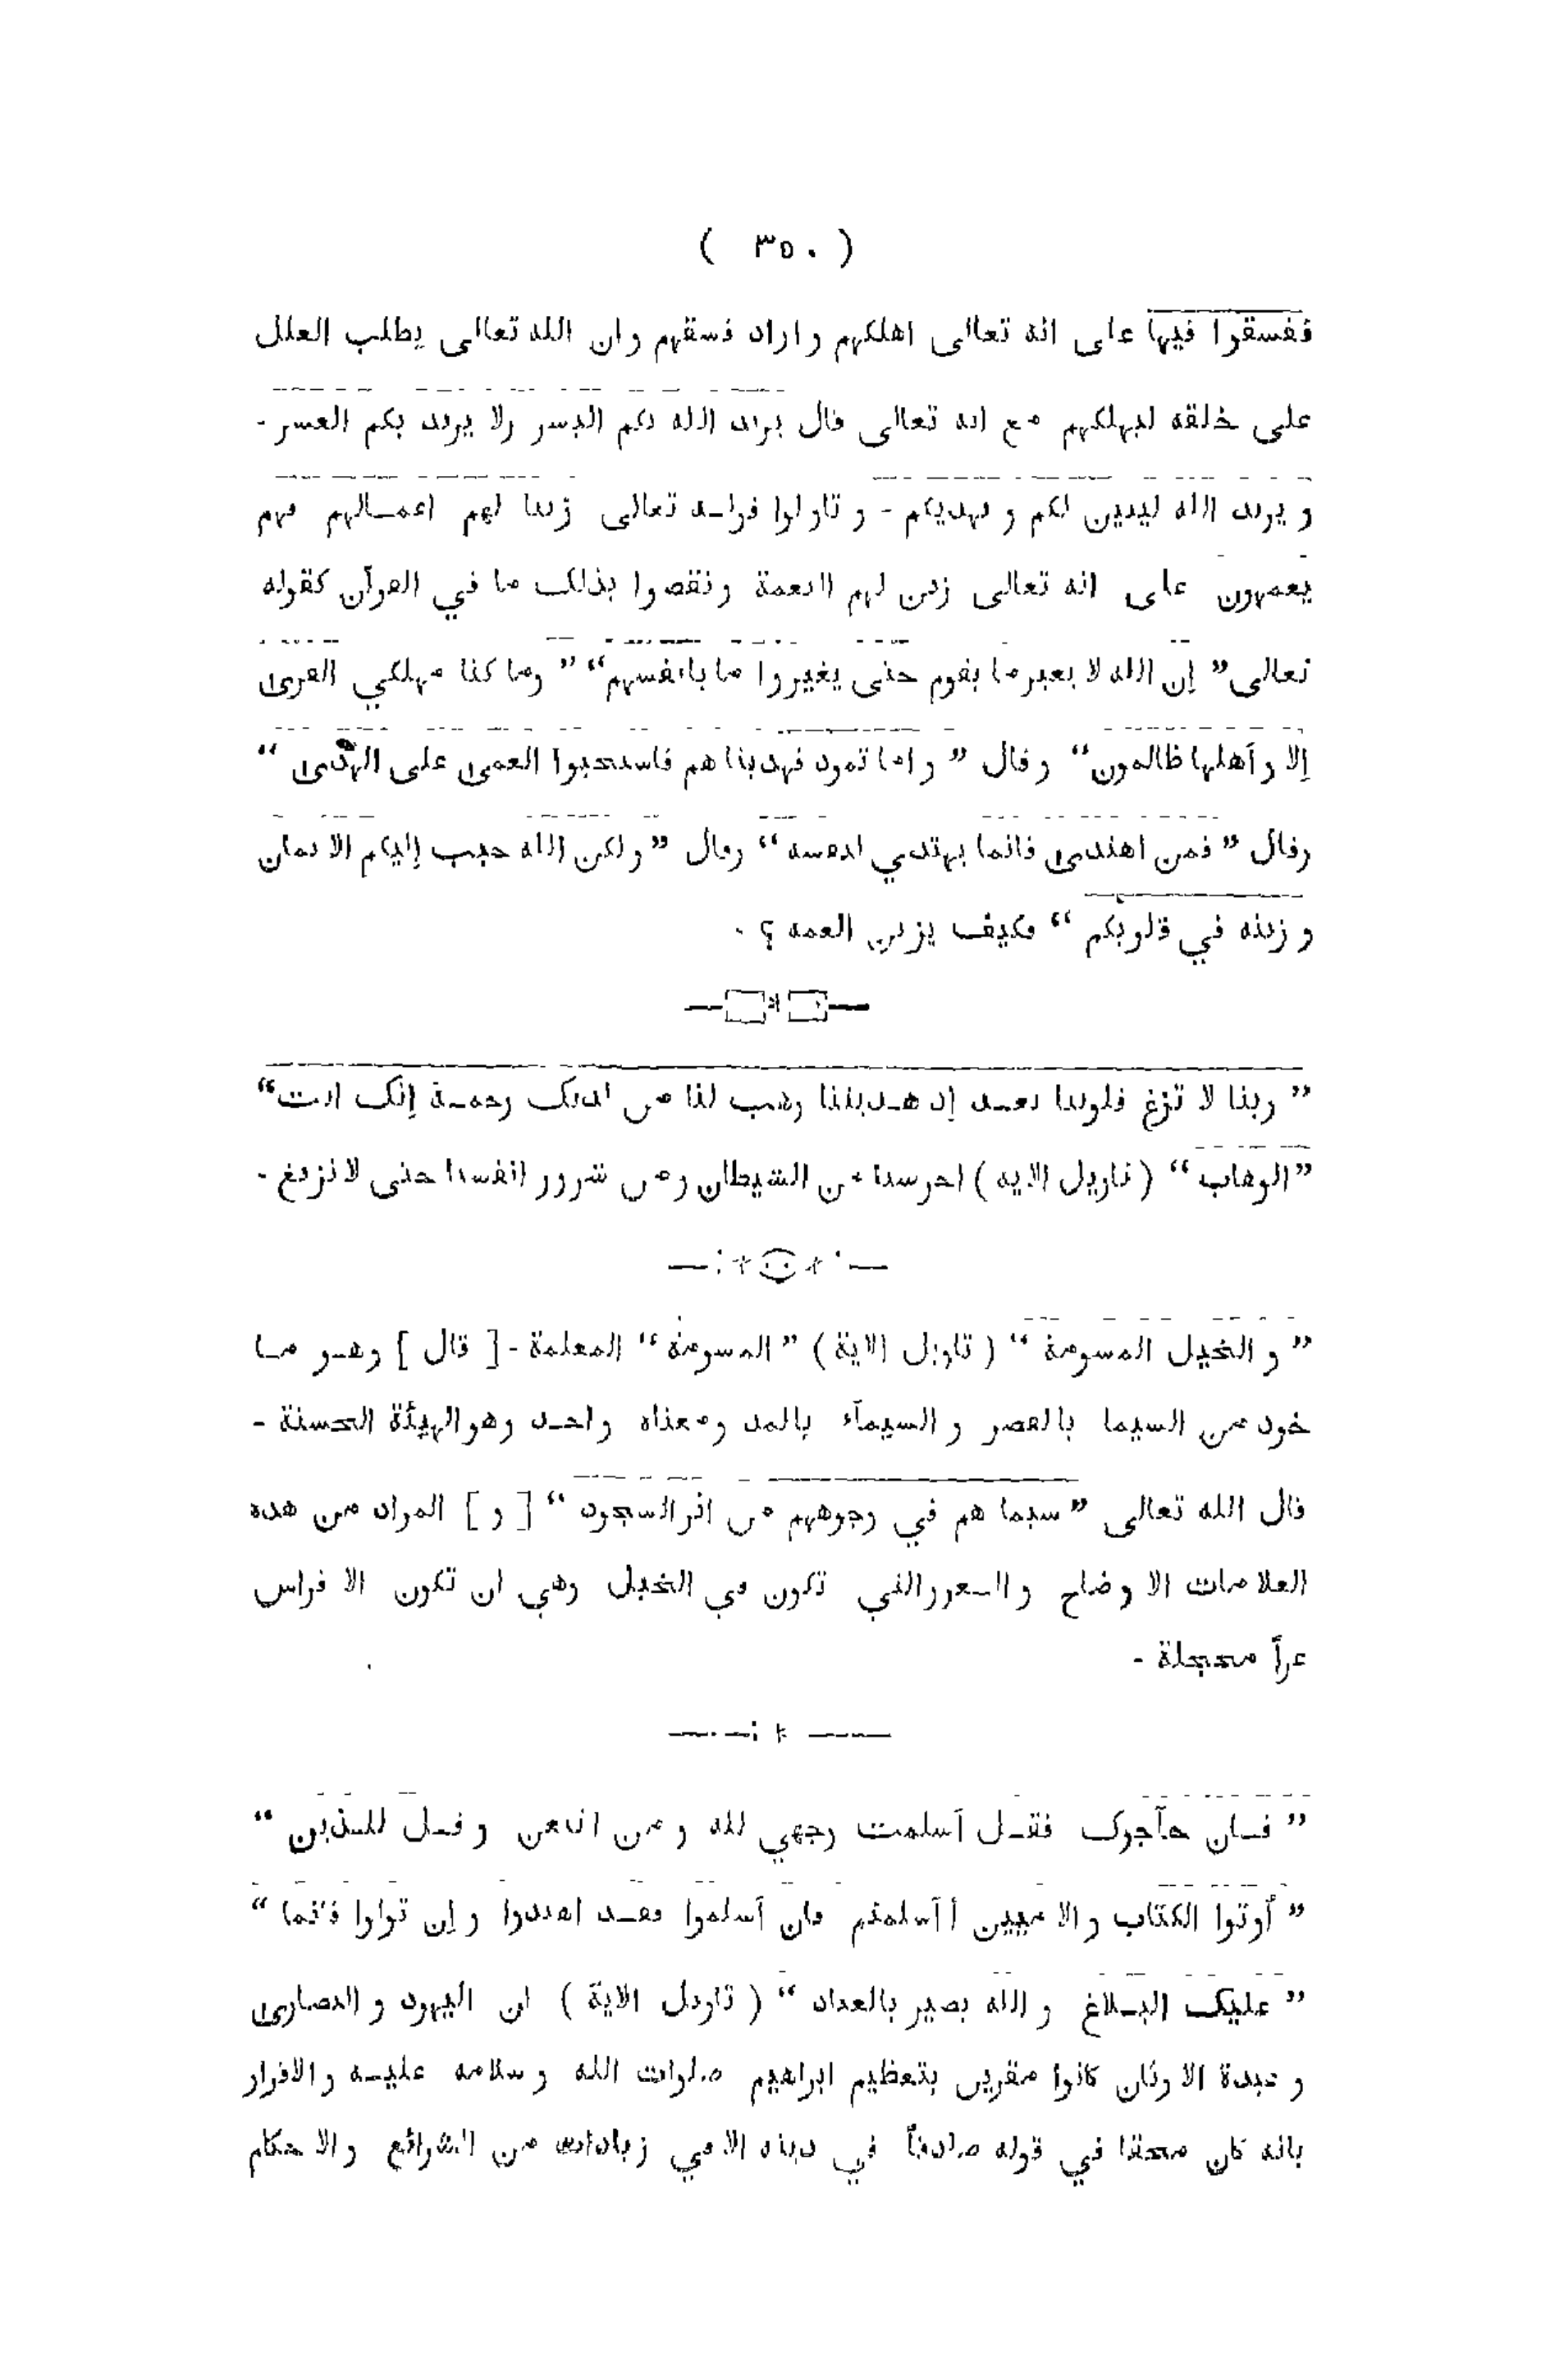 ( ٣٥٠ )
ففسقوا فيها على انه تعالى اهلكهم و اراد فسقهم و ان الله تعالى يطلب العلل
على خلقه ليهلكهم مع انه تعالى قال يريد الله بكم اليسر ولا يريد بكم العسر -
و يريد الله ليبين لكم و يهديكم - و تاولوا قولـه تعالى زينا لهم اعمـالهم فهم
يعمهون على انه تعالى زين لهم النعمة ونقصوا بذلك ما في القرآن كقوله
تعالى ” إن الله لا يغير ما بقوم حتى يغيروا ما بانفسهم “ ” وما كنا مهلكي القرى
إلا و أهلها ظالمون “ و قال ” و اما ثمود فهديناهم فاستحبوا العمى على الهدى “
وقال ” فمن اهتدى فانما يهتدي لنفسه “ وقال ” ولكن الله حبب إليكم الا يمان
و زينه في قلوبكم “ فكيف يزين العمه ؟ -
” ربنا لا تزغ قلوبنا بعـد إذ هـديتنا وهب لنا من لدنك رحمـة إنك انت “
” الوهاب “ ( تاويل الايه ) احرسنا من الشيطان ومن شرور انفسنا حتى لا نزيغ -
” و الخيل المسومة “ ( تاويل الاية ) ” المسومة “ المعلمة - [ قال ] وهـو مـا
خوذ من السيما بالقصر و السيمآء بالمد ومعناه واحـد وهو الهيئة الحسنة -
قال الله تعالى ” سيما هم في وجوههم من اثر السجود “ [ و ] المراد من هذه
العلامات الا وضاح و التي تكون في الخيل وهي ان تكون الا فراس
غراً محجلة -
” فـان حآجوك فقـل آسلمت وجهي لله و من اتبعن و قـل للـذين “
” أوتوا الكتاب و الا ميين أ آسلمتم فان آسلموا فقـد اهتدوا و إن تولوا فانما “
” عليك البـلاغ و الله بصير بالعباد “ ( تاويل الاية ) ان اليهود و النصارى
و عبدة الا وثان كانوا مقرين بتعظيم ابراهيم صلوات الله و سلامه عليـه و الاقرار
بانه كان محقا في قوله صادقاً في دينه الا في زيادات من الشرائع والا حكام